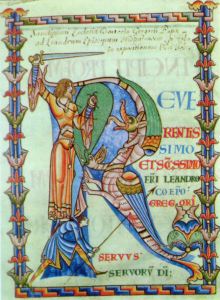 ad Leandrum Episcopum
REVE
RENTIS
SIMO
ET SCISSIMO
FRI LEANDRO
COEPO
GREGORI
SERVVS
SERVORV DI: